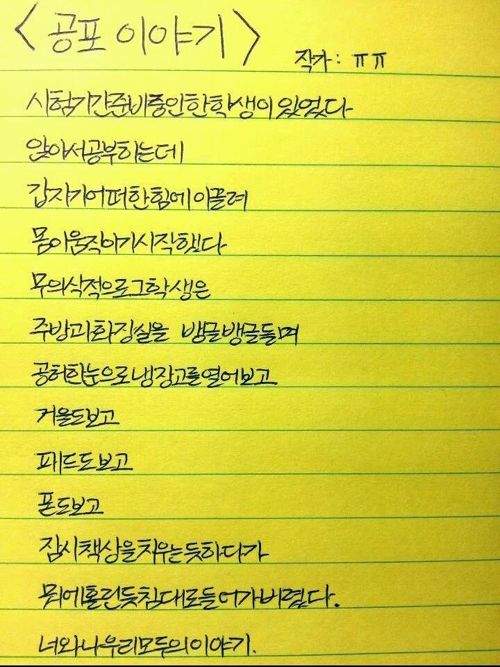 <공포 이야기>
작가 : ㅠㅠ
시험기간준비중인한학생이있었다
앉아서공부하는데
갑자기어떠한힘에이끌려
몸이움직이기시작했다
무의식적으로그학생은
주방과화장실을 뱅글뱅글돌며
공허한눈으로냉장고를열어보고
거울도보고
패드도보고
폰도보고
잠시책상을치우는듯하다가
뭐에홀린듯침대로들어가버렸다.
너와나우리모두의이야기.